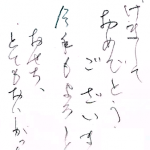 げまして
おめでとう
ございま
今年もよろし
おせち、
とてもおいしかっ